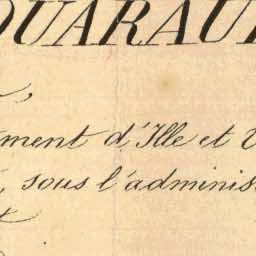 OUARAU
ment d'Ille et V
, sous l'adminis
t